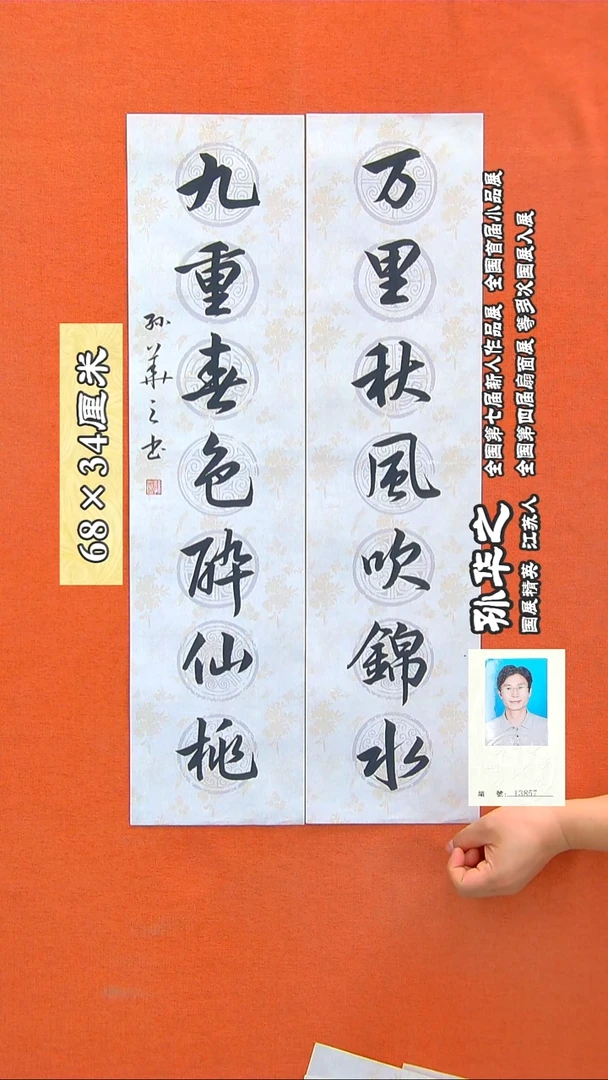 万里秋风吹錦水
九重春色醉仙桃
孙華之书
68×34厘米
孙华之
国展精英 江苏人
全国第七届新人作品展 全国首届小品展
全国第四届扇面展 等多次国展入展
編 號：13857